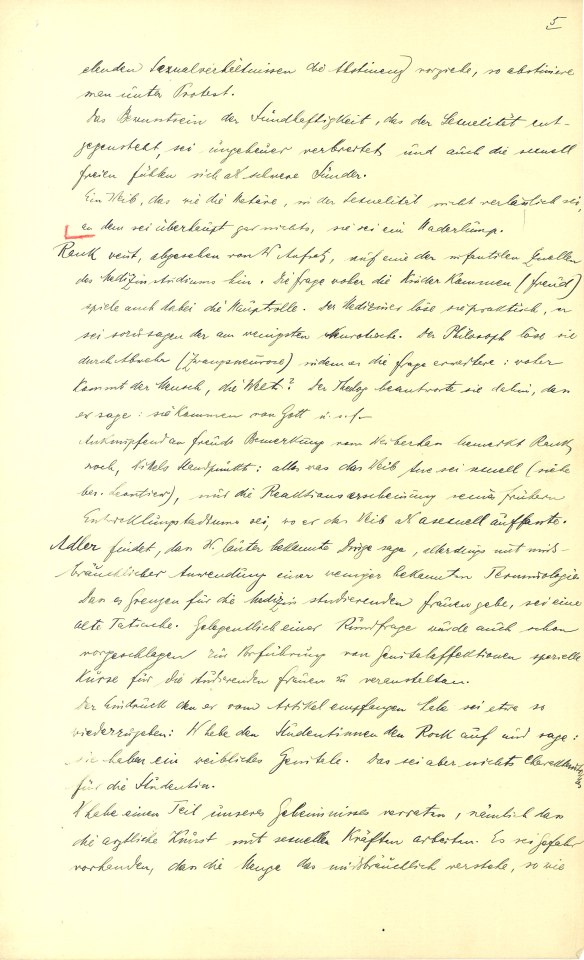 5
elenden Sexualverhältnissen die Abstinenz vorziehe, so abstiniere
man unter Protest.
Das Bewusstsein der Sündhaftigkeit, das der Sexualität ent-
gegensteht, sei ungeheuer verbreitet und auch die sexuell
freien fühlen sich als schwere Sünder.
Ein Weib, das wie die Hetäre, in der Sexualität nicht verlässlich sei,
an dem sei überhaupt gar nichts, sie sei ein Haderlump.
Rank weist, abgesehen von W Aufsatz, auf eine der infantilen Quellen
des Medizinstudiums hin. Die Frage woher die Kinder kommen (Freud)
spiele auch dabei die Hauptrolle. Der Mediziner löse sie praktisch, er
sei sozusagen der am wenigsten Neurotische. Der Philosoph löse sie
durch Abwehr (Zwangsneurose) indem er die Frage erweitere: woher
kommt der Mensch, die Welt? Der Theolog beantworte sie dahin, dass
er sage: sie kommen von Gott u.s.f.
Anknüpfend an Freuds Bemerkung vom bemerkt Rank
noch, Standpunkt: alles was das Weib tue sei sexuell (siehe
bes. ), nur die Reaktionserscheinung seines frühern
Entwicklungsstadiums sei, wo er das Weib als asexuell auffasste.
Adler findet, dass W. lauter bekannte Dinge sage, allerdings mit miß-
bräuchlicher Anwendung einer weniger bekannten Terminologie
Dass es Grenzen für die Medizin studierenden Frauen gebe, sei eine
alte Tatsache. Gelegentlich einer Rundfrage wurde auch schon
vorgeschlagen zur Vorführung von Genitalaffektionen spezielle
Kurse für die studierenden Frauen zu veranstalten.
Der Eindruck den er vom Artikel empfangen habe sei etwa so
wiederzugeben: W hebe den Studentinnen den Rock auf und sage:
sie haben ein weibliches Genitale. Das sei aber nichts Charakteristisches
für die Studentin.
W habe einen Teil unseres Geheimnisses verraten, nämlich dass
die ärztliche Kunst mit sexuellen Kräften arbeiten. Es sei Gefahr
vorhanden, dass die Menge das mißbräuchlich verstehe, so wie